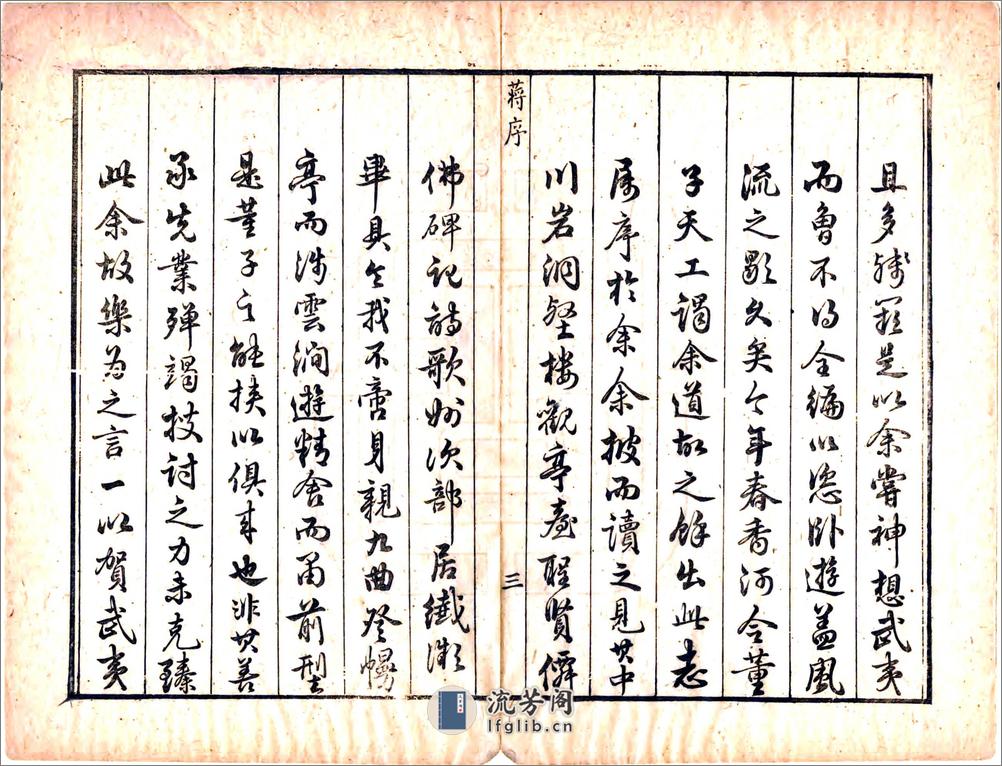 且多殘闕是以余嘗神想武夷
而會不得全編以恣卧遊蓋風
流之歇久矣今年春香河令董
子天工謁余道故之餘出此志
属序於余余披而讀之見其中
川岩洞壑樓觀亭臺聖賢僊
蔣序
三
佛碑記詩歌州次部居纖微
畢具令我不啻身親九曲登幔
亭而涉雲澗遊精舍而肅前型
是董子之能挾以俱來也非其善
承先業殫竭搜討之力未克臻
此余故樂為之言一以賀武夷
流芳阁
lfglib.cn